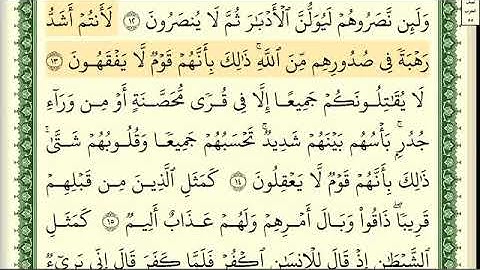 وَلَئِن نَّصَرُوهُمْ لَيُوَلُّنَّ ٱلْأَدْبَٰرَ ثُمَّ لَا يُنصَرُونَ ١٢ لَأَنتُمْ أَشَدُّ
رَهْبَةً فِى صُدُورِهِم مِّنَ ٱللَّهِ ۚ ذَٰلِكَ بِأَنَّهُمْ قَوْمٌ لَّا يَفْقَهُونَ ١٣
لَا يُقَٰتِلُونَكُمْ جَمِيعًا إِلَّا فِى قُرًى مُّحَصَّنَةٍ أَوْ مِن وَرَآءِ
جُدُرٍۭ ۚ بَأْسُهُم بَيْنَهُمْ شَدِيدٌ ۚ تَحْسَبُهُمْ جَمِيعًا وَقُلُوبُهُمْ شَتَّىٰ ۚ
ذَٰلِكَ بِأَنَّهُمْ قَوْمٌ لَّا يَعْقِلُونَ ١٤ كَمَثَلِ ٱلَّذِينَ مِن قَبْلِهِمْ
قَرِيبًا ۖ ذَاقُوا۟ وَبَالَ أَمْرِهِمْ وَلَهُمْ عَذَابٌ أَلِيمٌ ١٥ كَمَثَلِ
ٱلشَّيْطَٰنِ إِذْ قَالَ لِلْإِنسَٰنِ ٱكْفُرْ فَلَمَّا كَفَرَ قَالَ إِنِّى بَرِىٓءٌ